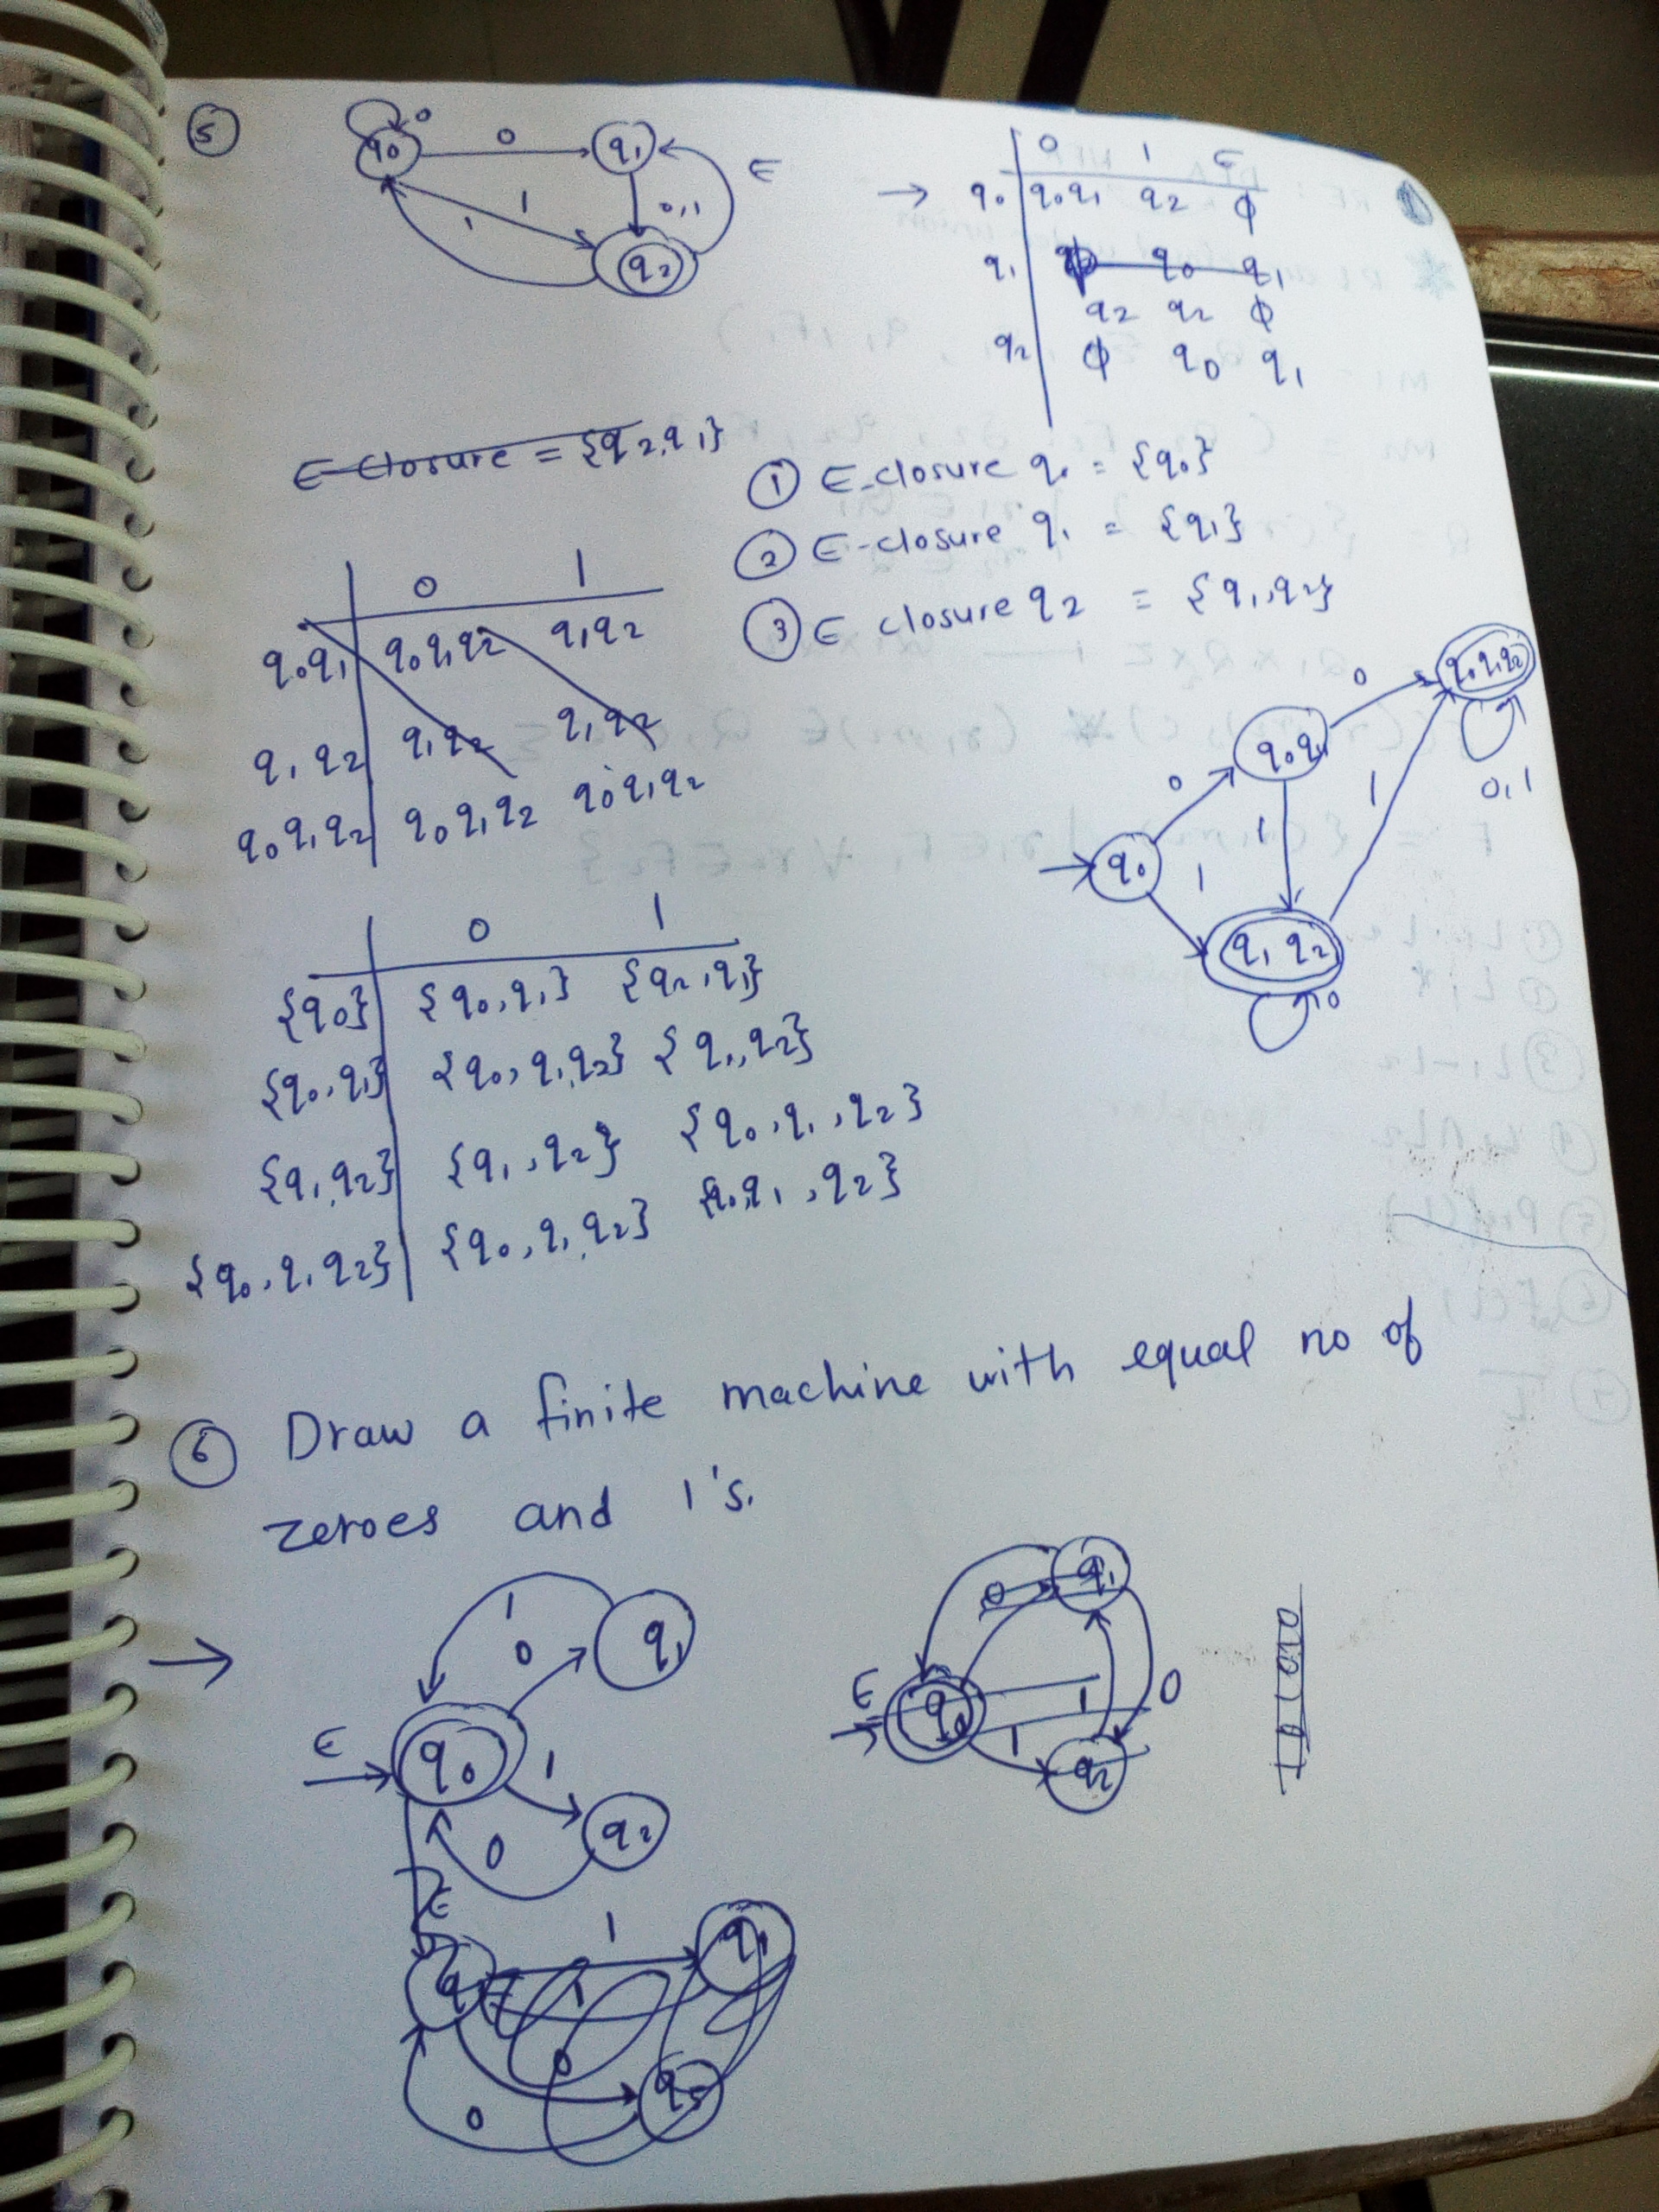 5
0
q0 0 q1
1 1 0,1 ∈
q2
→ 0 1 ∈
q0 q0q1 q2 ϕ
q1 ϕ q0 q1
q2 q2 ϕ
q2 ϕ q0 q1
∈-closure = {q2,q1}
① ∈-closure q0 = {q0}
② ∈-closure q1 = {q1}
③ ∈ closure q2 = {q1,q2}
0 1
q0q1 q0q1q2 q1q2
q1q2 q1q2 q1q2
q0q1q2 q0q1q2 q0q1q2
q0q1q2
0
q0q1
0 1 1 0,1
q0
1
q1 q2
0
0 1
{q0} {q0,q1} {q2,q1}
{q0,q1} {q0,q1,q2} {q1,q2}
{q1,q2} {q1,q2} {q0,q1,q2}
{q0,q1,q2} {q0,q1,q2} {q0,q1,q2}
⑥ Draw a finite machine with equal no of
zeroes and 1's.
→ 1 0 q1
∈ q0 1
0 q2
0 q1
∈ q0 1 1 0
q2
∈
1
1
0
0